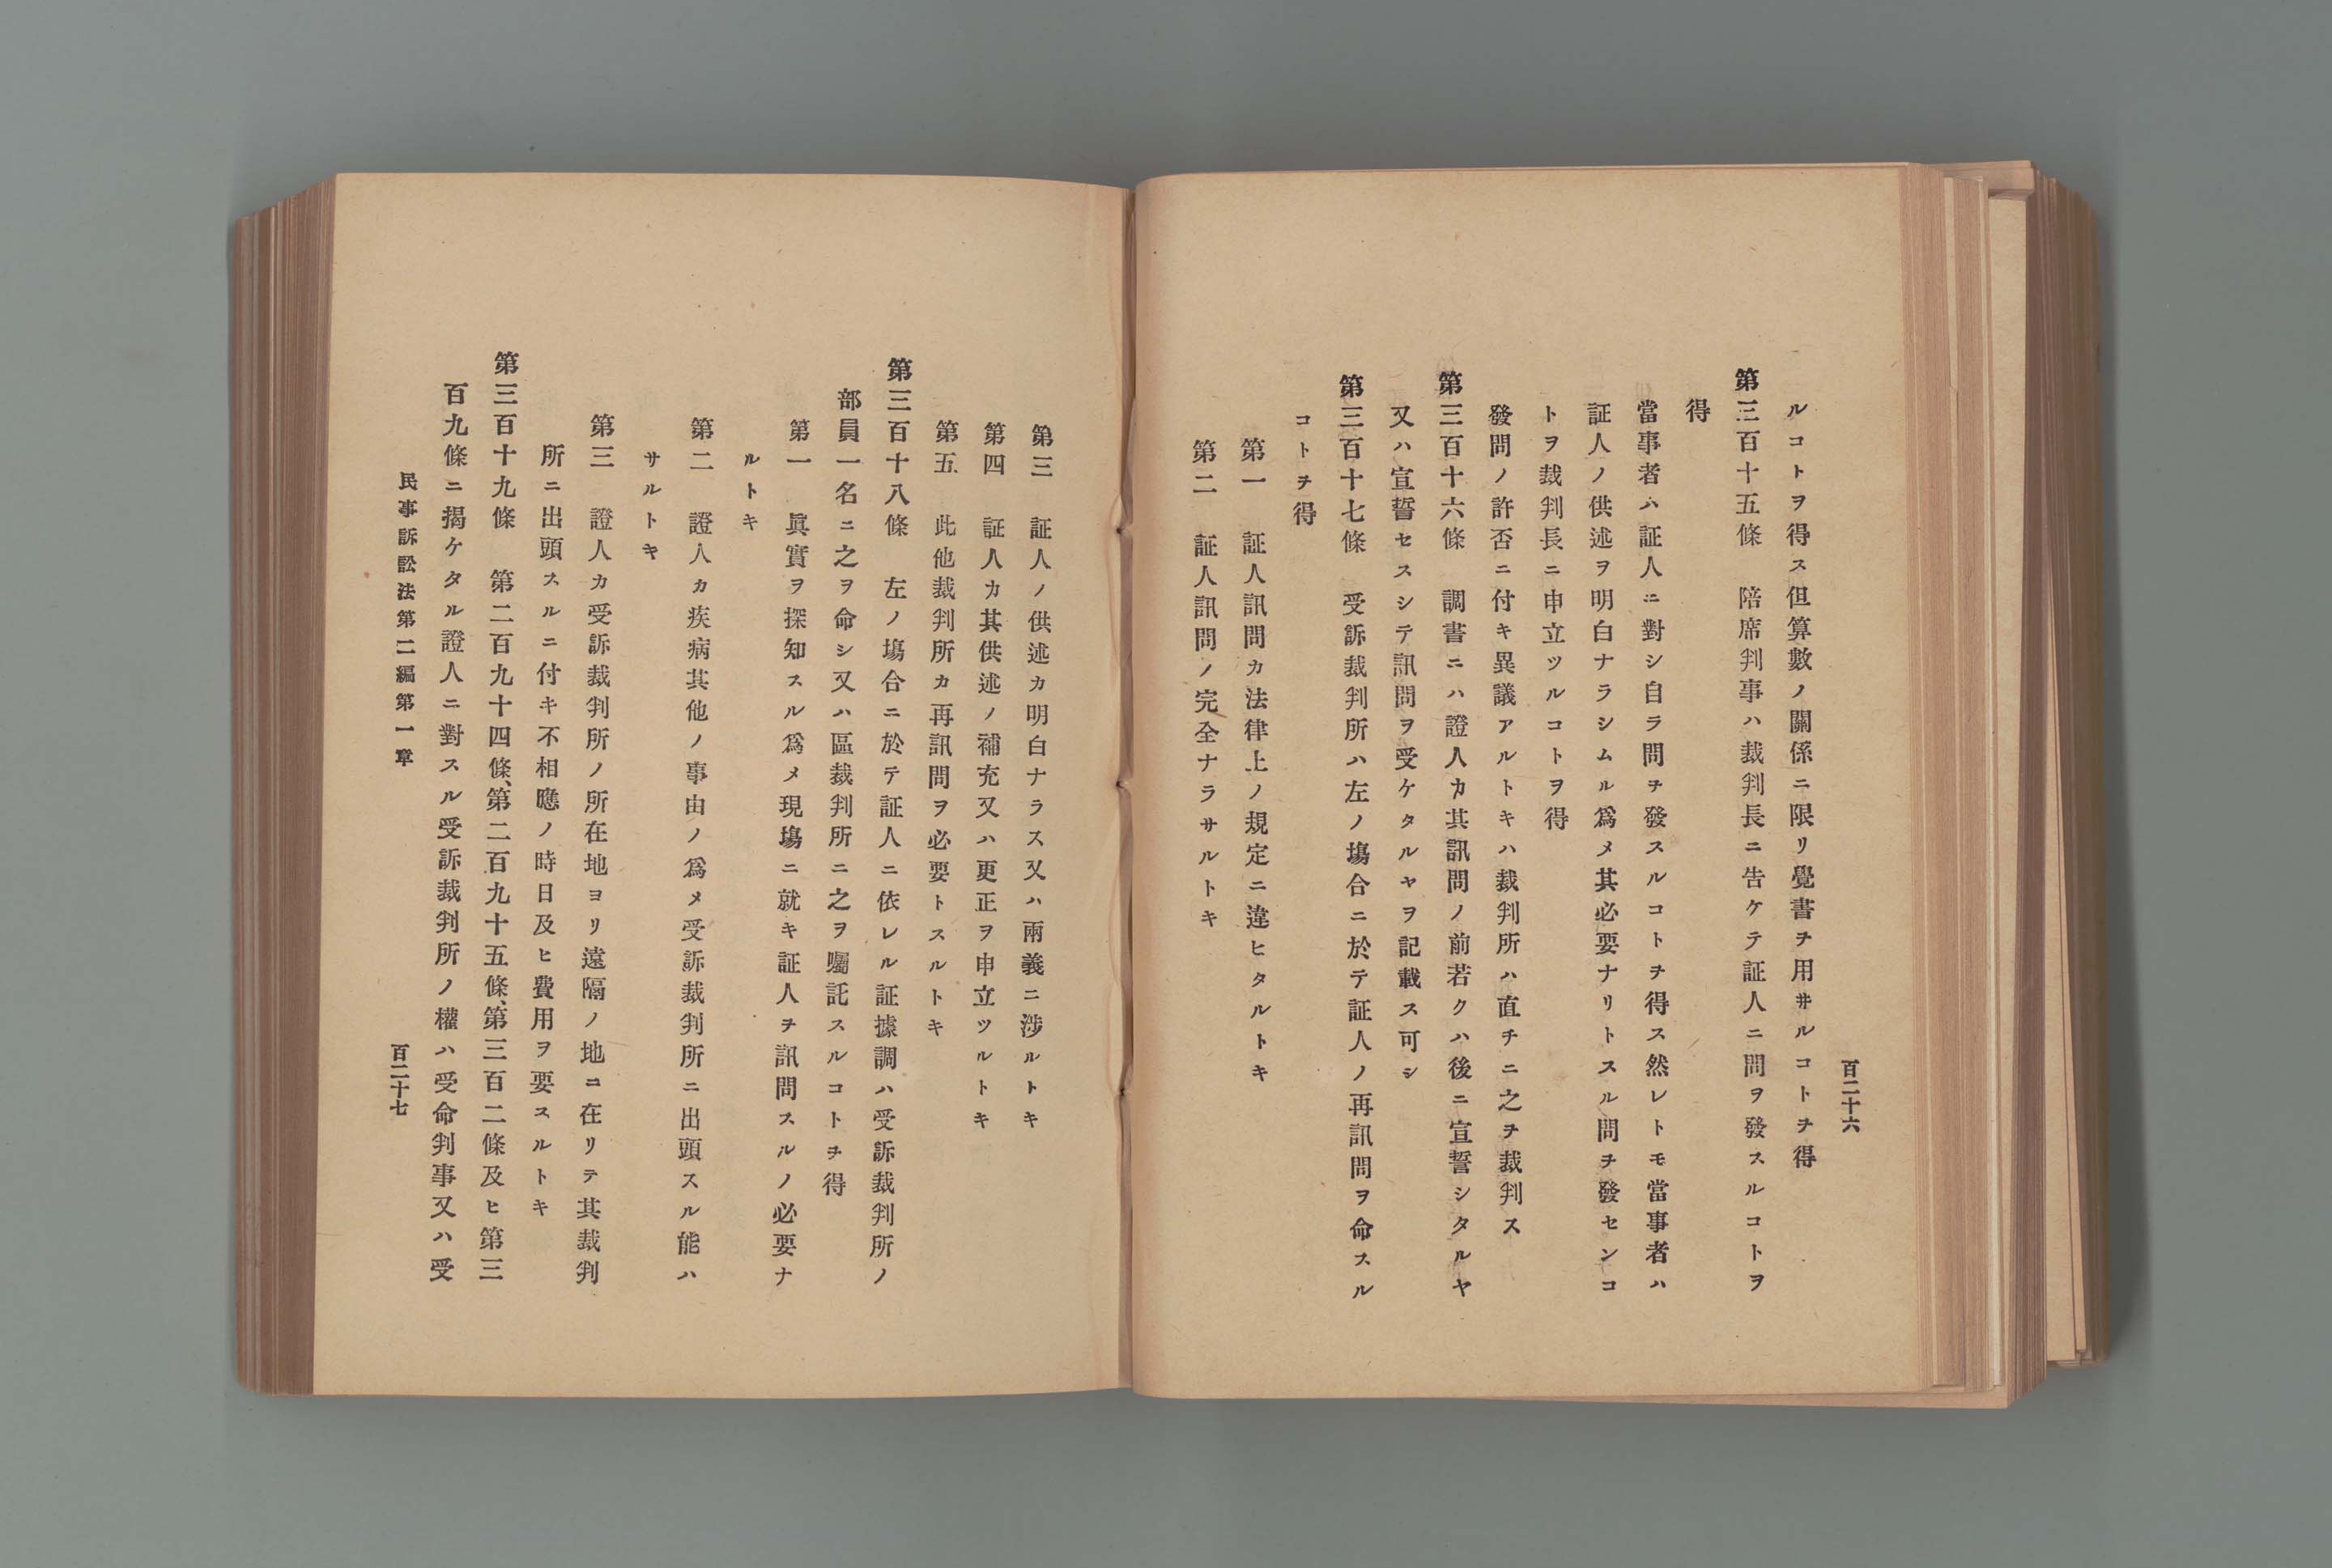 百二十六
ルコトヲ得ス但算數ノ關係ニ限リ覺書ヲ用井ルコトヲ得
第三百十五條　陪席判事ハ裁判長ニ告ケテ証人ニ問ヲ發スルコトヲ
得
當事者ハ証人ニ對シ自ラ問ヲ發スルコトヲ得ス然レトモ當事者ハ
証人ノ供述ヲ明白ナラシムル爲メ其必要ナリトスル問ヲ發センコ
トヲ裁判長ニ申立ツルコトヲ得
發問ノ許否ニ付キ異議アルトキハ裁判所ハ直チニ之ヲ裁判ス
第三百十六條　調書ニハ證人カ其訊問ノ前若クハ後ニ宣誓シタルヤ
又ハ宣誓セスシテ訊問ヲ受ケタルヤヲ記載ス可シ
第三百十七條　受訴裁判所ハ左ノ塲合ニ於テ証人ノ再訊問ヲ命スル
コトヲ得
第一　証人訊問カ法律上ノ規定ニ違ヒタルトキ
第二　証人訊問ノ完全ナラサルトキ
第三　証人ノ供述カ明白ナラス又ハ兩義ニ涉ルトキ
第四　証人カ其供述ノ補充又ハ更正ヲ申立ツルトキ
第五　此他裁判所カ再訊問ヲ必要トスルトキ
第三百十八條　左ノ塲合ニ於テ証人ニ依レル証據調ハ受訴裁判所ノ
部員一名ニ之ヲ命シ又ハ區裁判所ニ之ヲ囑託スルコトヲ得
第一　眞實ヲ探知スル爲メ現塲ニ就キ証人ヲ訊問スルノ必要ナ
ルトキ
第二　證人カ疾病其他ノ事由ノ爲メ受訴裁判所ニ出頭スル能ハ
サルトキ
第三　證人カ受訴裁判所ノ所在地ヨリ遠隔ノ地ニ在リテ其裁判
所ニ出頭スルニ付キ不相應ノ時日及ヒ費用ヲ要スルトキ
第三百十九條　第二百九十四條、第二百九十五條、第三百二條及ヒ第三
百九條ニ揭ケタル證人ニ對スル受訴裁判所ノ權ハ受命判事又ハ受
民事訴訟法第二編第一章
百二十七